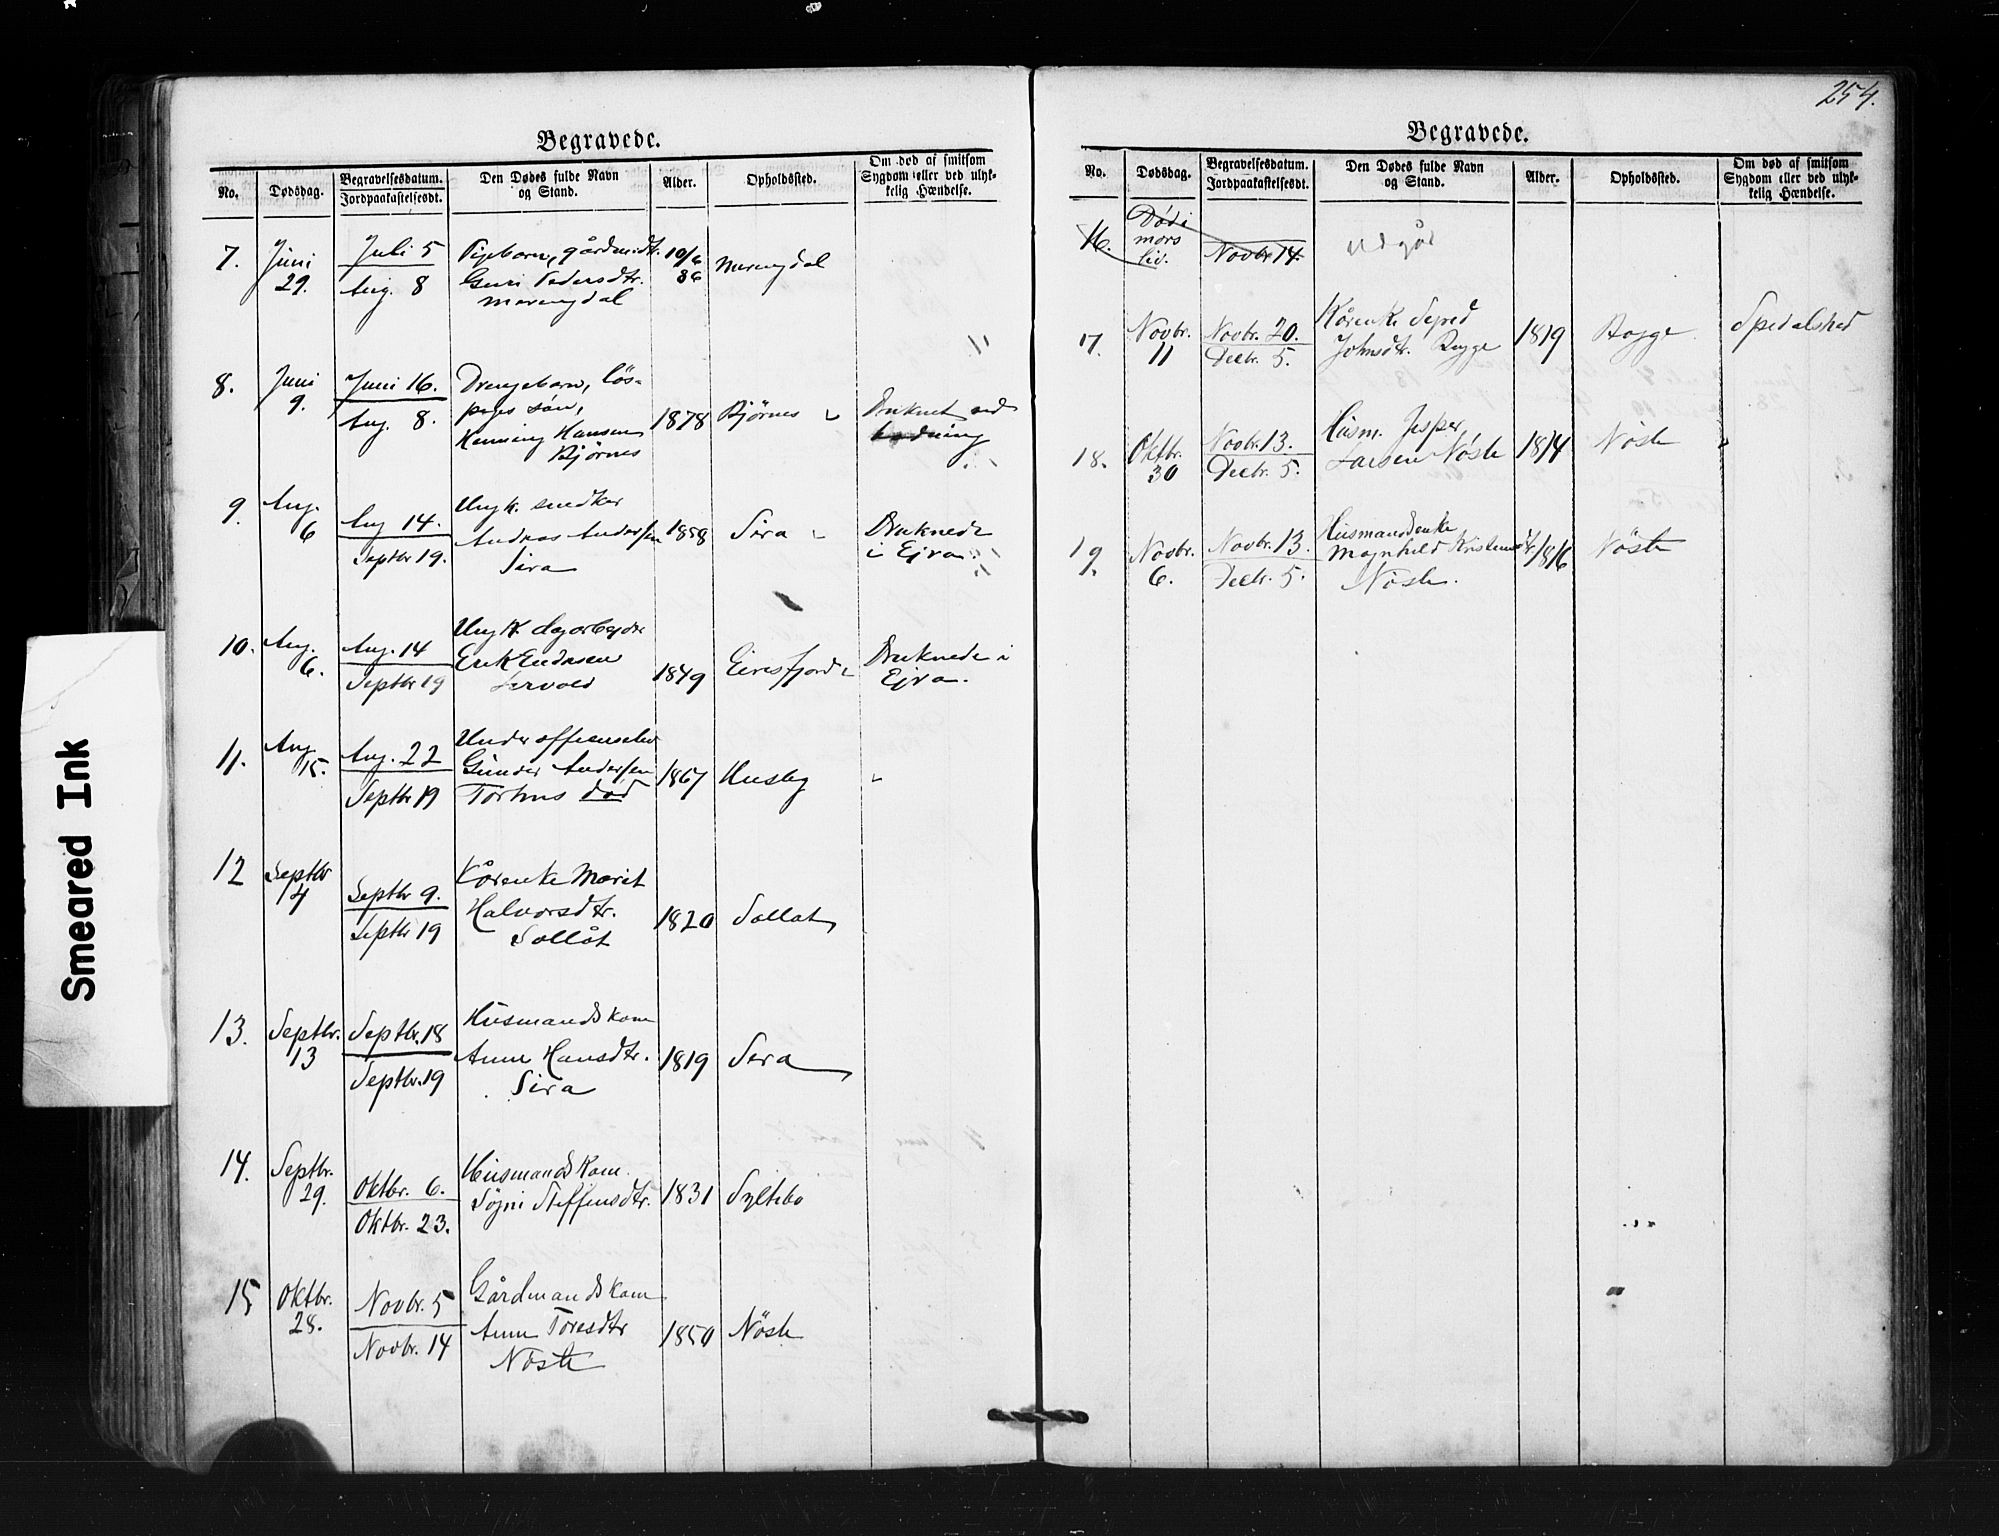 254.
Smeared Ink
Begravede.
No.
Dødsdag.
Begravelsesdatum.
Jordpaakastelsesdt.
Den Dødes fulde Navn
og Stand.
Alder.
Opholdssted.
Om død af smitsom
Sygdom eller ved ulyk-
kelig Hændelse.
7.
Juni
29.
Juli 5
Aug. 8
Pigebarn, gårdmdtr.
Guri Pedersdtr.
Merengdal
10/6
86
Merengdal
8.
Juni
9.
Juni 16.
Aug. 8.
Drengebarn, løs-
søn,
Henning Hansen
Bjørnes
1878
Bjørnes
Druknet ved
badning
9.
Aug.
6
Aug 14.
Septbr 19.
Ungk. snedker
Andreas Andersen
Sira
1858
Sira
Druknede
i Ejra.
10.
Aug.
6.
Aug. 14
Septbr 19
Ungk. dagarbejder
Erik Endresen
1849
Eiresfjord
Druknede i
Ejra.
11.
Aug.
15.
Aug. 22
Septbr 19
Gunder Andersen
Torhus død
1867
Husby
12
Septbr
4
Septbr 9.
Septbr 19
Kårenke Marit
Halvorsdtr.
Sollåt
1820
Sollåt
13.
Septbr.
13
Septbr. 18
Septbr. 19
Husmandskone
Anne Hansdtr.
Sira
1819
Sira
14.
Septbr.
29.
Oktbr. 6.
Oktbr. 23.
Husmandskone
Søgni Steffensdtr.
1831
Syltebø
15
Oktbr.
28.
Novbr. 5
Novbr. 14
Gårdmandskone
Anne Toresdtr
Nöste
1850
Nöste
Begravede.
No.
Dødsdag.
Begravelsesdatum.
Jordpaakastelsesdt.
Den Dødes fulde Navn
og Stand.
Alder.
Opholdssted.
Om død af smitsom
Sygdom eller ved ulyk-
kelig Hændelse.
16.
Død i
mors
liv.
Novbr 14.
udgår
17.
Novbr.
11
Novbr. 20.
Decbr. 5.
Kårenke
Johnsdtr. Bugge
1819
Bugge
Spedalskhed
18.
Oktbr.
30
Novbr. 13.
Decbr. 5.
Husm. Jesper
Larsen Nöste
1814
Nöste
19.
Novbr.
6.
Novbr. 13.
Decbr. 5.
Husmandsenke
Magnhild Kristensdtr.
Nöste.
1816
Nöste